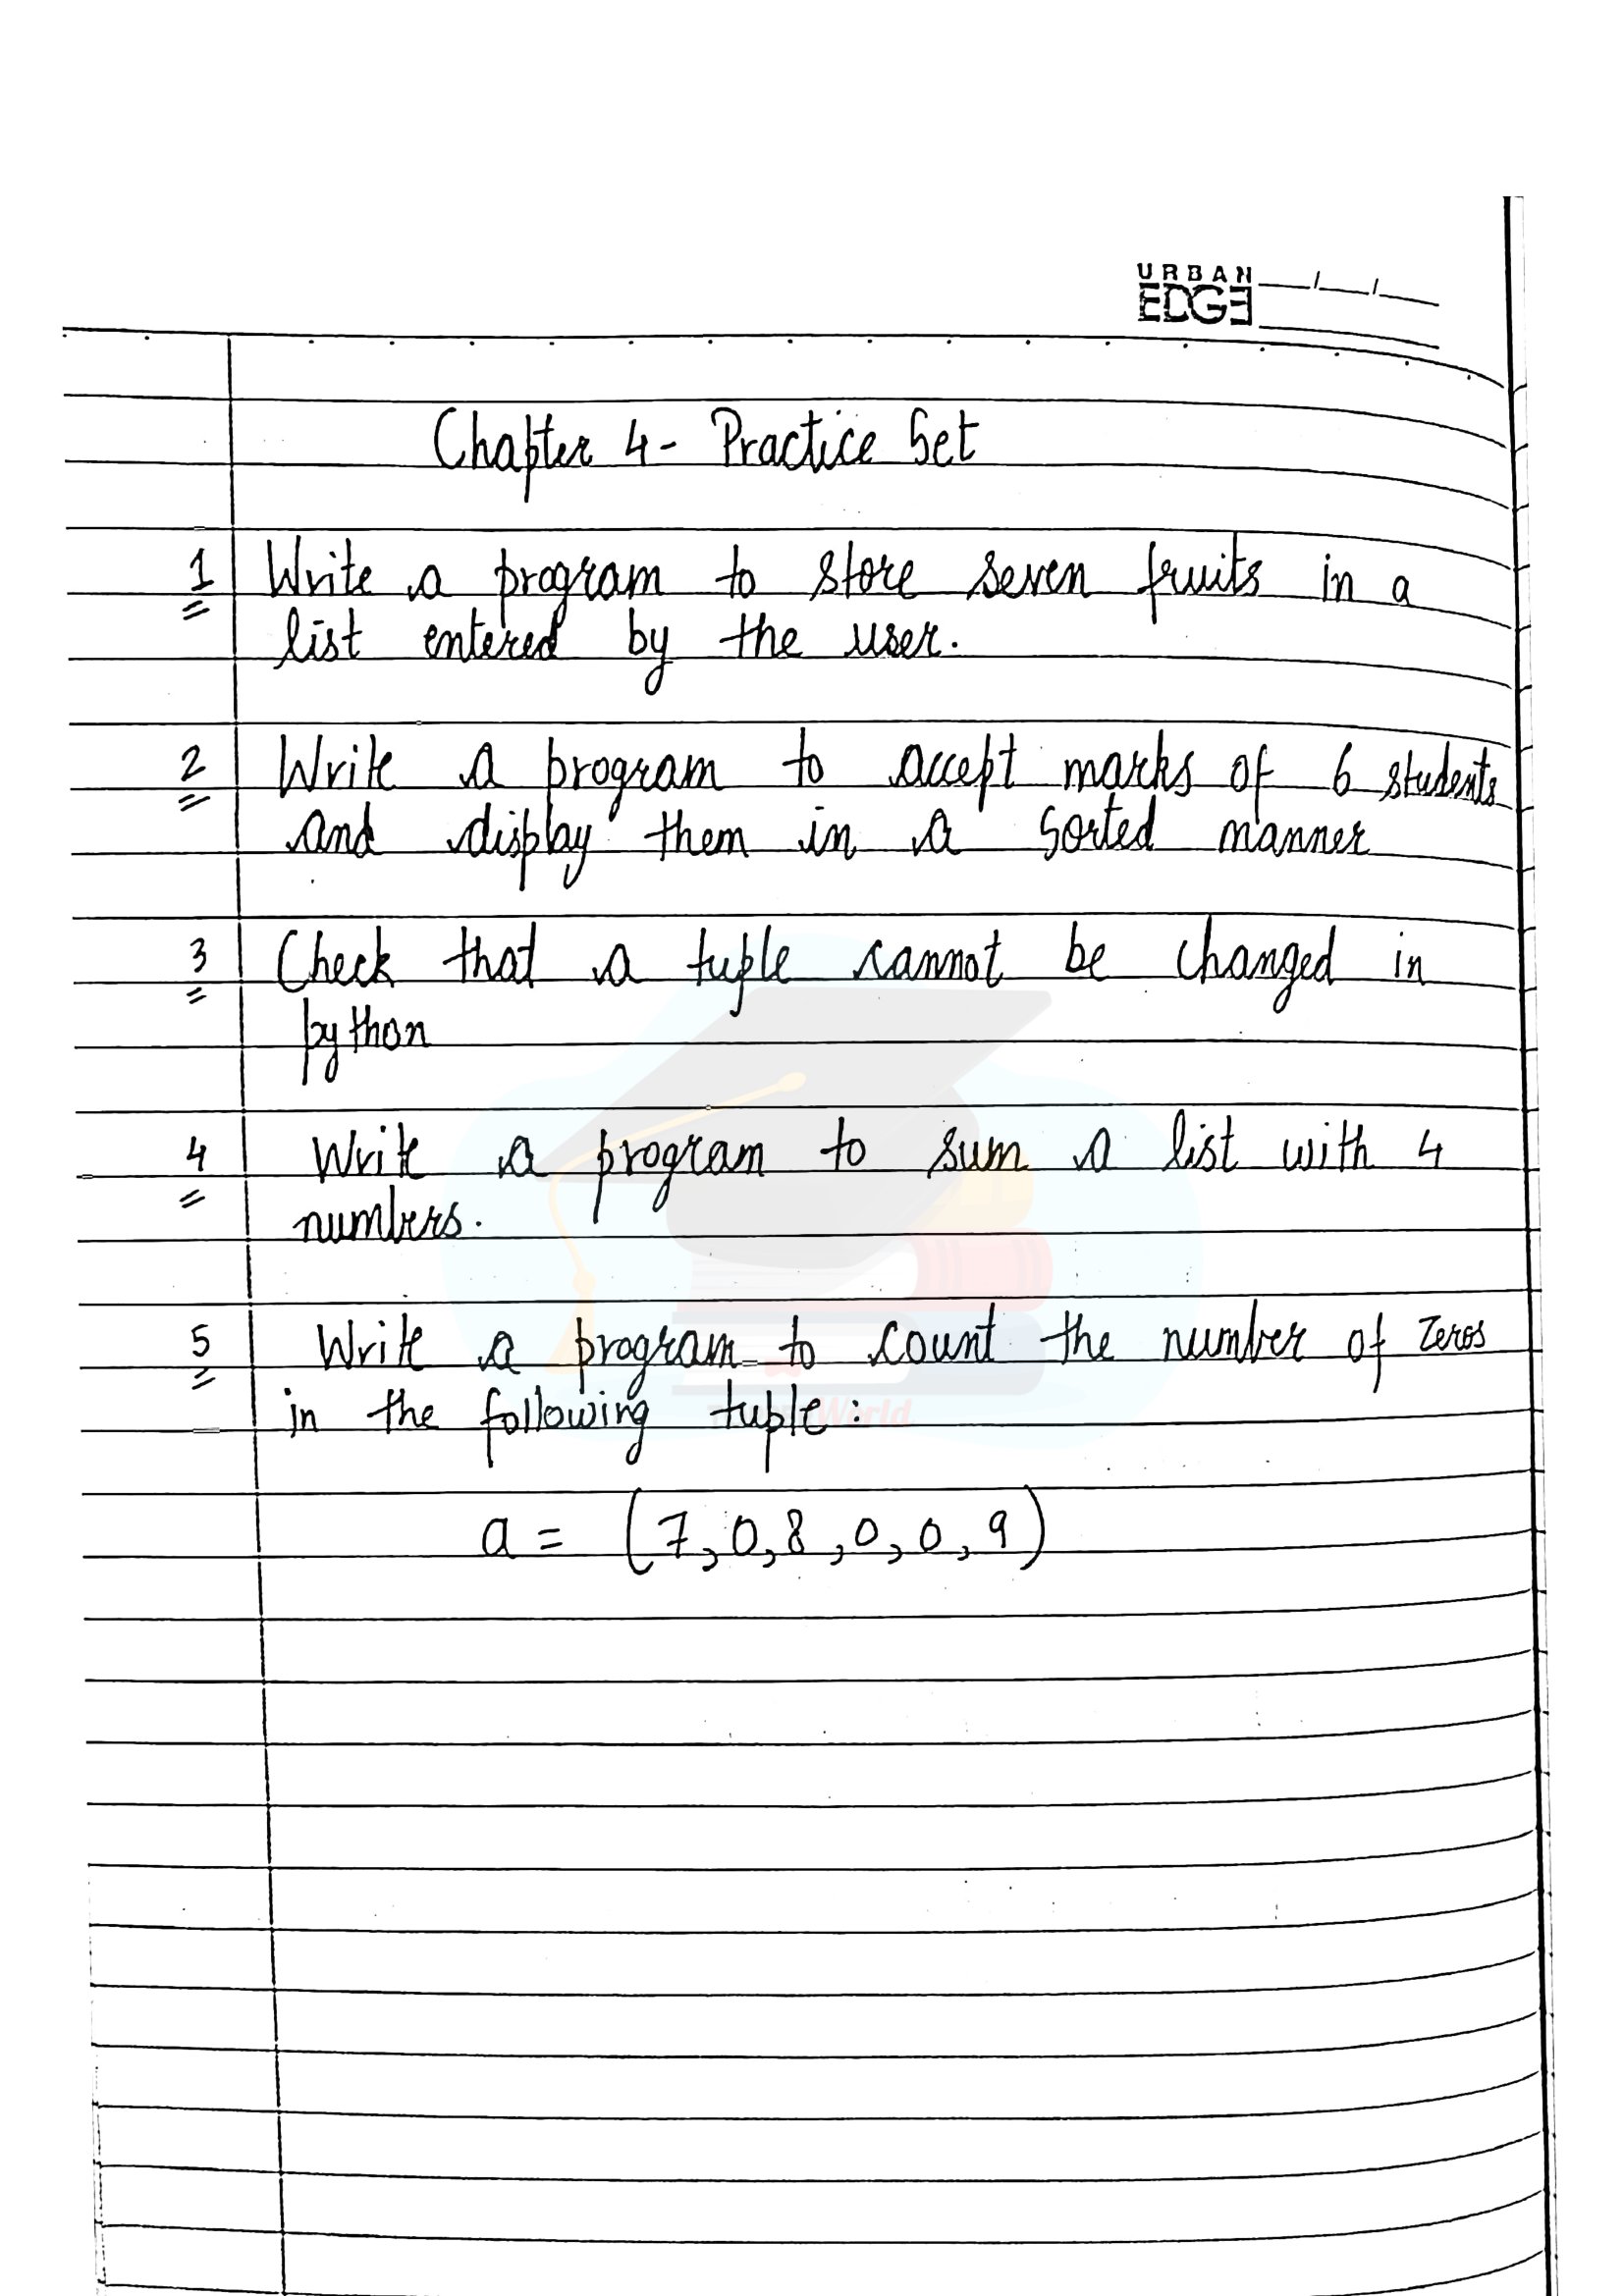 URBAN
EDGE
Chapter 4 - Practice Set
1 Write a program to store seven fruits in a
list entered by the user.
2 Write a program to accept marks of 6 students
and display them in a sorted manner
3 Check that a tuple cannot be changed in
python
4 Write a program to sum a list with 4
numbers.
5 Write a program to count the number of zeros
in the following tuple:
World
a = (7,0,8,0,0,9)